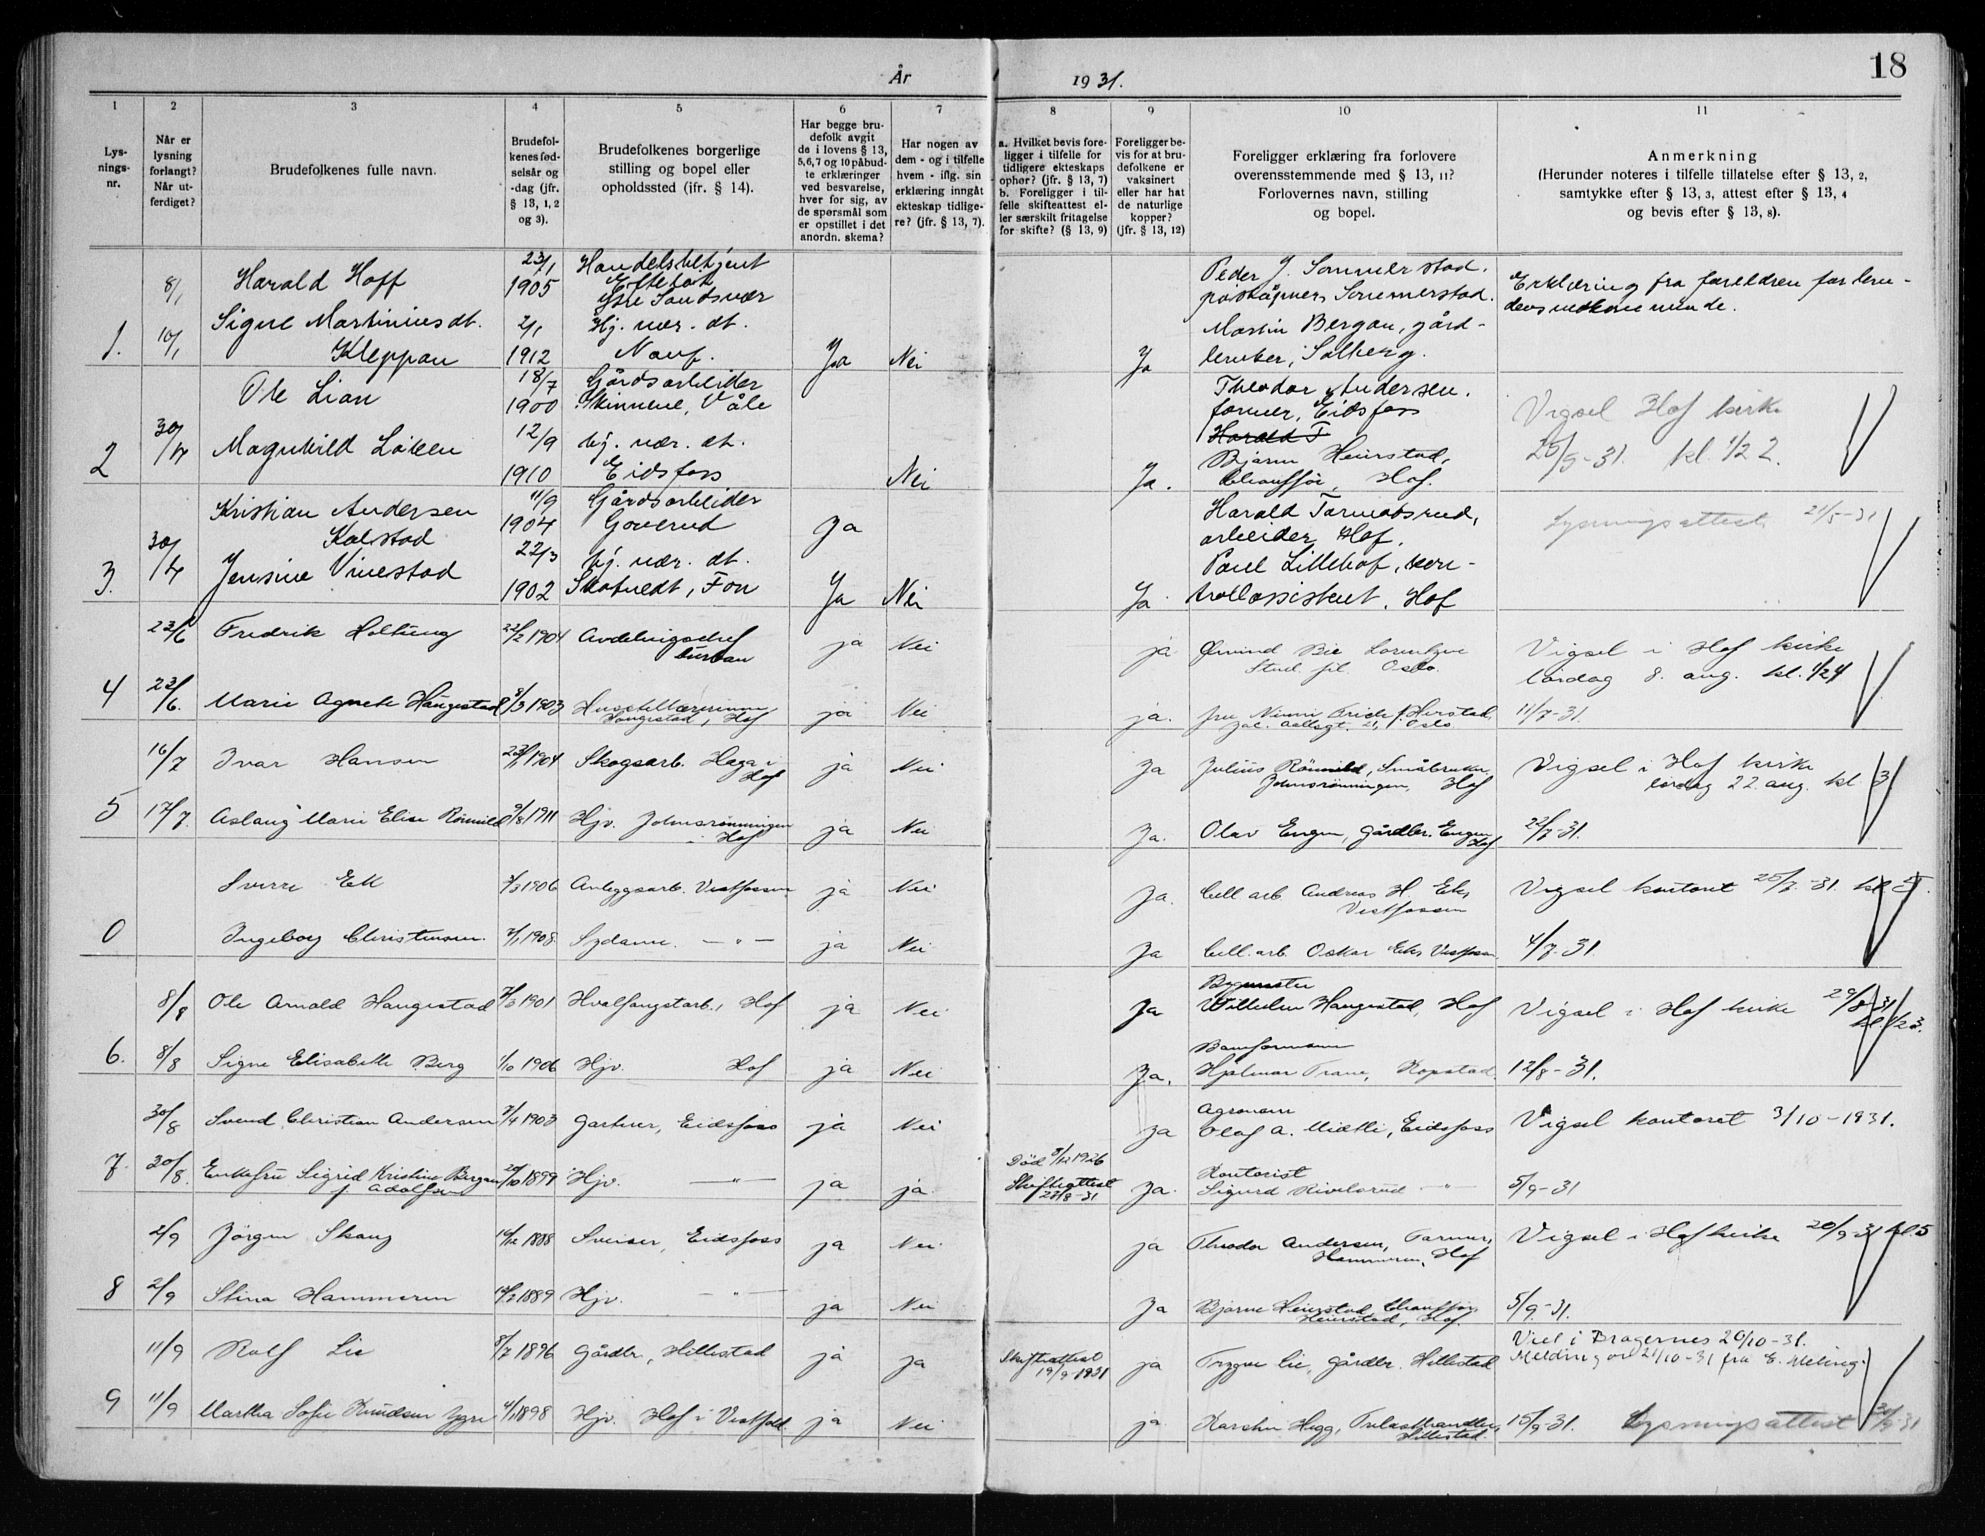 18
År 1931.
1 2 3 4 5 6 7 8 9 10 11
Lysnings-nr.
Når er lysning forlangt? Når utferdiget?
Brudefolkenes fulle navn.
Brudefolkenes fødselsår og -dag (jfr. § 13, 1, 2 og 3).
Brudefolkenes borgerlige stilling og bopel eller opholdssted (ifr. § 14).
Har begge brudefolk avgit de i lovens § 13, 5,6,7 og 10 påbudte erklæringer ved besvarelse, hver for sig, av de spørsmål som er opstillet i det anordn. skema?
Har nogen av dem - og i tilfelle hvem - iflg. sin erklæring inngått ekteskap tidligere? (jfr. § 13, 7).
a. Hvilket bevis foreligger i tilfelle for tidligere ekteskaps ophør? (jfr. § 13, 7)
b. Foreligger i tilfelle skifteattest eller særskilt fritagelse for skifte? (§ 13, 9)
Foreligger bevis for at brudefolkene er vaksinert eller har hat de naturlige kopper? (jfr. § 13, 12)
Foreligger erklæring fra forlovere overensstemmende med § 13, 11? Forlovernes navn, stilling og bopel.
Anmerkning
(Herunder noteres i tilfelle tillatelse efter § 13, 2, samtykke efter § 13, 3, attest efter § 13, 4 og bevis efter § 13, 8).
8/1 Harald Hoff 23/1 1905 Handelsbetjent Efteløt Ytre Sandsvær Peder J. Sommerstad. poståpner, Sommerstad. Erklæring fra foreldren for brudens vedkommende.
1. 10/1 Signe Martiniusdt. Kleppan 2/1 1912 Hj. vær. dt. Ja Nei Ja Martin Bergan, gårdbruker, Solberg.
Ole Lian 18/7 1900 Gårdsarbeider Skinnene, Våle Theodor Andersen, former, Eidsfoss Vigsel Hof kirke
2 30/4 Magnhild Løken 12/9 1910 hj. vær. dt. Eidsfoss Nei Ja. Harald T Bjarne Heierstad, Chauffør, Hof. 25/9-31. kl. 1/2 2.
Kristian Andersen Kolstad 11/9 1904 Gårdsarbeider Goverud Ja Harald Tormodsrud, arbeider, Hof. Lysningsattest 21/5-31
3. 30/4 Jensine Vinestad 22/3 1902 hj. vær. dt. Skotvedt, Fon Ja Nei Ja Paul Lillehof, kontrollassistent, Hof
23/6 Fredrik Holtung 22/2 1904 Avdelingschef ja Nei ja Øivind Bie Lorentzen Stud. fil. Oslo. Vigsel i Hof kirke lørdag 8. aug. kl. 1/2 4
4 23/6. Marie Agnete Hangestad 8/3 1903 Hangestad, Hof ja Nei ja. fru Oslo 11/7-31.
16/7 Ivar Hansen 23/1 1904 Skogsarb. Haga i Hof ja Nei Ja Julius Rönvild, Småbruker, Johnsrønningen, Hof Vigsel i Hof kirke lørdag 22. aug. kl. 3
5 17/7. Aslaug Marie Elise Rönvild 9/8 1911 Hjv. Johnsrønningen i Hof ja Nei Ja. Olav Engen, gårdbr. Engen Hof 22/7-31.
Sverre Ek 3/3 1906 Anleggsarb. Vestfossen ja Nei Ja. Cell arb. Andreas H. Ek, Vestfossen Vigsel kontoret 25/7-31. kl. 5.
0 Ingeborg Christensen. 7/1 1908. Sydame. - " - ja Nei Ja Cell. arb. Oskar Ek, Vestfossen 4/7-31.
8/8 Ole Arnold Hangestad 7/3 1901 Hvalfangstarb., Hof ja Nei Ja Bygmester Wilhelm Hangestad, Hof Vigsel i Hof kirke 29/8-31 kl. 1/2 3.
6. 8/8 Signe Elisabeth Berg 1/10 1906 Hjv. Hof ja Nei Ja. Hjalmar Trane, Kopstad. 12/8-31.
30/8 Svend Christian Andersen 7/4 1903 Gartner, Eidsfoss ja Nei ja Agronom Olaf A. Midtli, Eidsfoss Vigsel kontoret 3/10-1931.
7. 30/8. Enkefru Sigrid Kristine Bergan f. Adolfsen 20/10 1899 Hjv. - " - ja ja. Død 9/12 1926 Skifteattest 27/8-31 Ja. Kontorist Sigurd - " - 5/9-31
2/9 Jörgen Skaug 16/12 1888 Sveiser, Eidsfoss ja Nei ja Theodor Andersen, Former, Hammeren, Hof Vigsel i Hof kirke 20/9-31 kl. 5
8 2/9 Stina Hammeren 1889 Hjv. - " - ja Nei Ja Bjarne Heierstad, Chauffør, Heierstad, Hof. 5/9-31.
11/9 Rolf Lie 8/7 1896 Gårdbr., Hillestad ja ja Skifteattest 19/9-1931 ja Trygve Lie, gårdbr. Hillestad Viet i Bragernes 20/10-31. Melding av 21/10-31 fra E. Meling.
9 11/9 Martha Sofie Knudsen 4/1 1898 Hjv. Hof i Vestfold. ja Nei ja. Karsten Hegg, Trelasthandler, Hillestad. 15/9-31. Lysningsattest 30/9-31